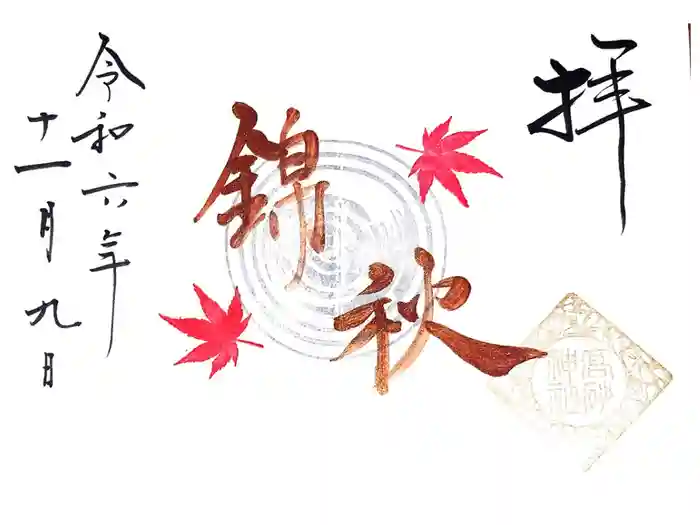 拝
錦秋
令和六年
十一月九日
高砂
神社